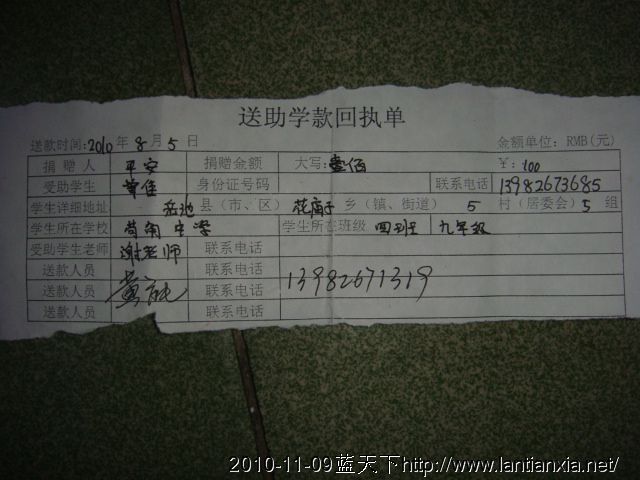 送助学款回执单
送款时间:2010年8月5日 金额单位: RMB(元)
捐赠人 平安 捐赠金额 大写:壹佰 ¥: 100
受助学生 身份证号码 联系电话 13982673685
学生详细地址 岳池 县(市、区) 花庙子 乡(镇、街道) 5 村(居委会) 5 组
学生所在学校 苟角中学 学生所在班级 四班 九年级
受助学生老师 谢老师 联系电话
送款人员 联系电话
送款人员 联系电话 13982671319
送款人员 联系电话
2010-11-09蓝天下http://www.lantianxia.net/